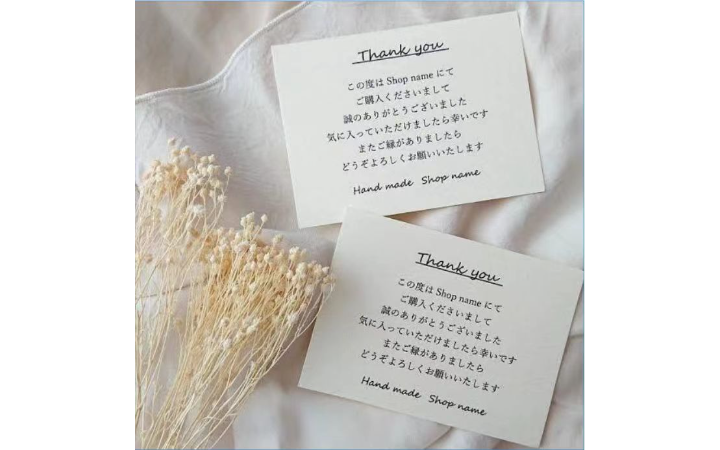 Thank you
この度は Shop name にて
ご購入くださいまして
誠のありがとうございました
気に入っていただけましたら幸いです
またご縁がありましたら
どうぞよろしくお願いいたします
Hand made Shop name
Thank you
この度は Shop name にて
ご購入くださいまして
誠のありがとうございました
気に入っていただけましたら幸いです
またご縁がありましたら
どうぞよろしくお願いいたします
Hand made Shop name